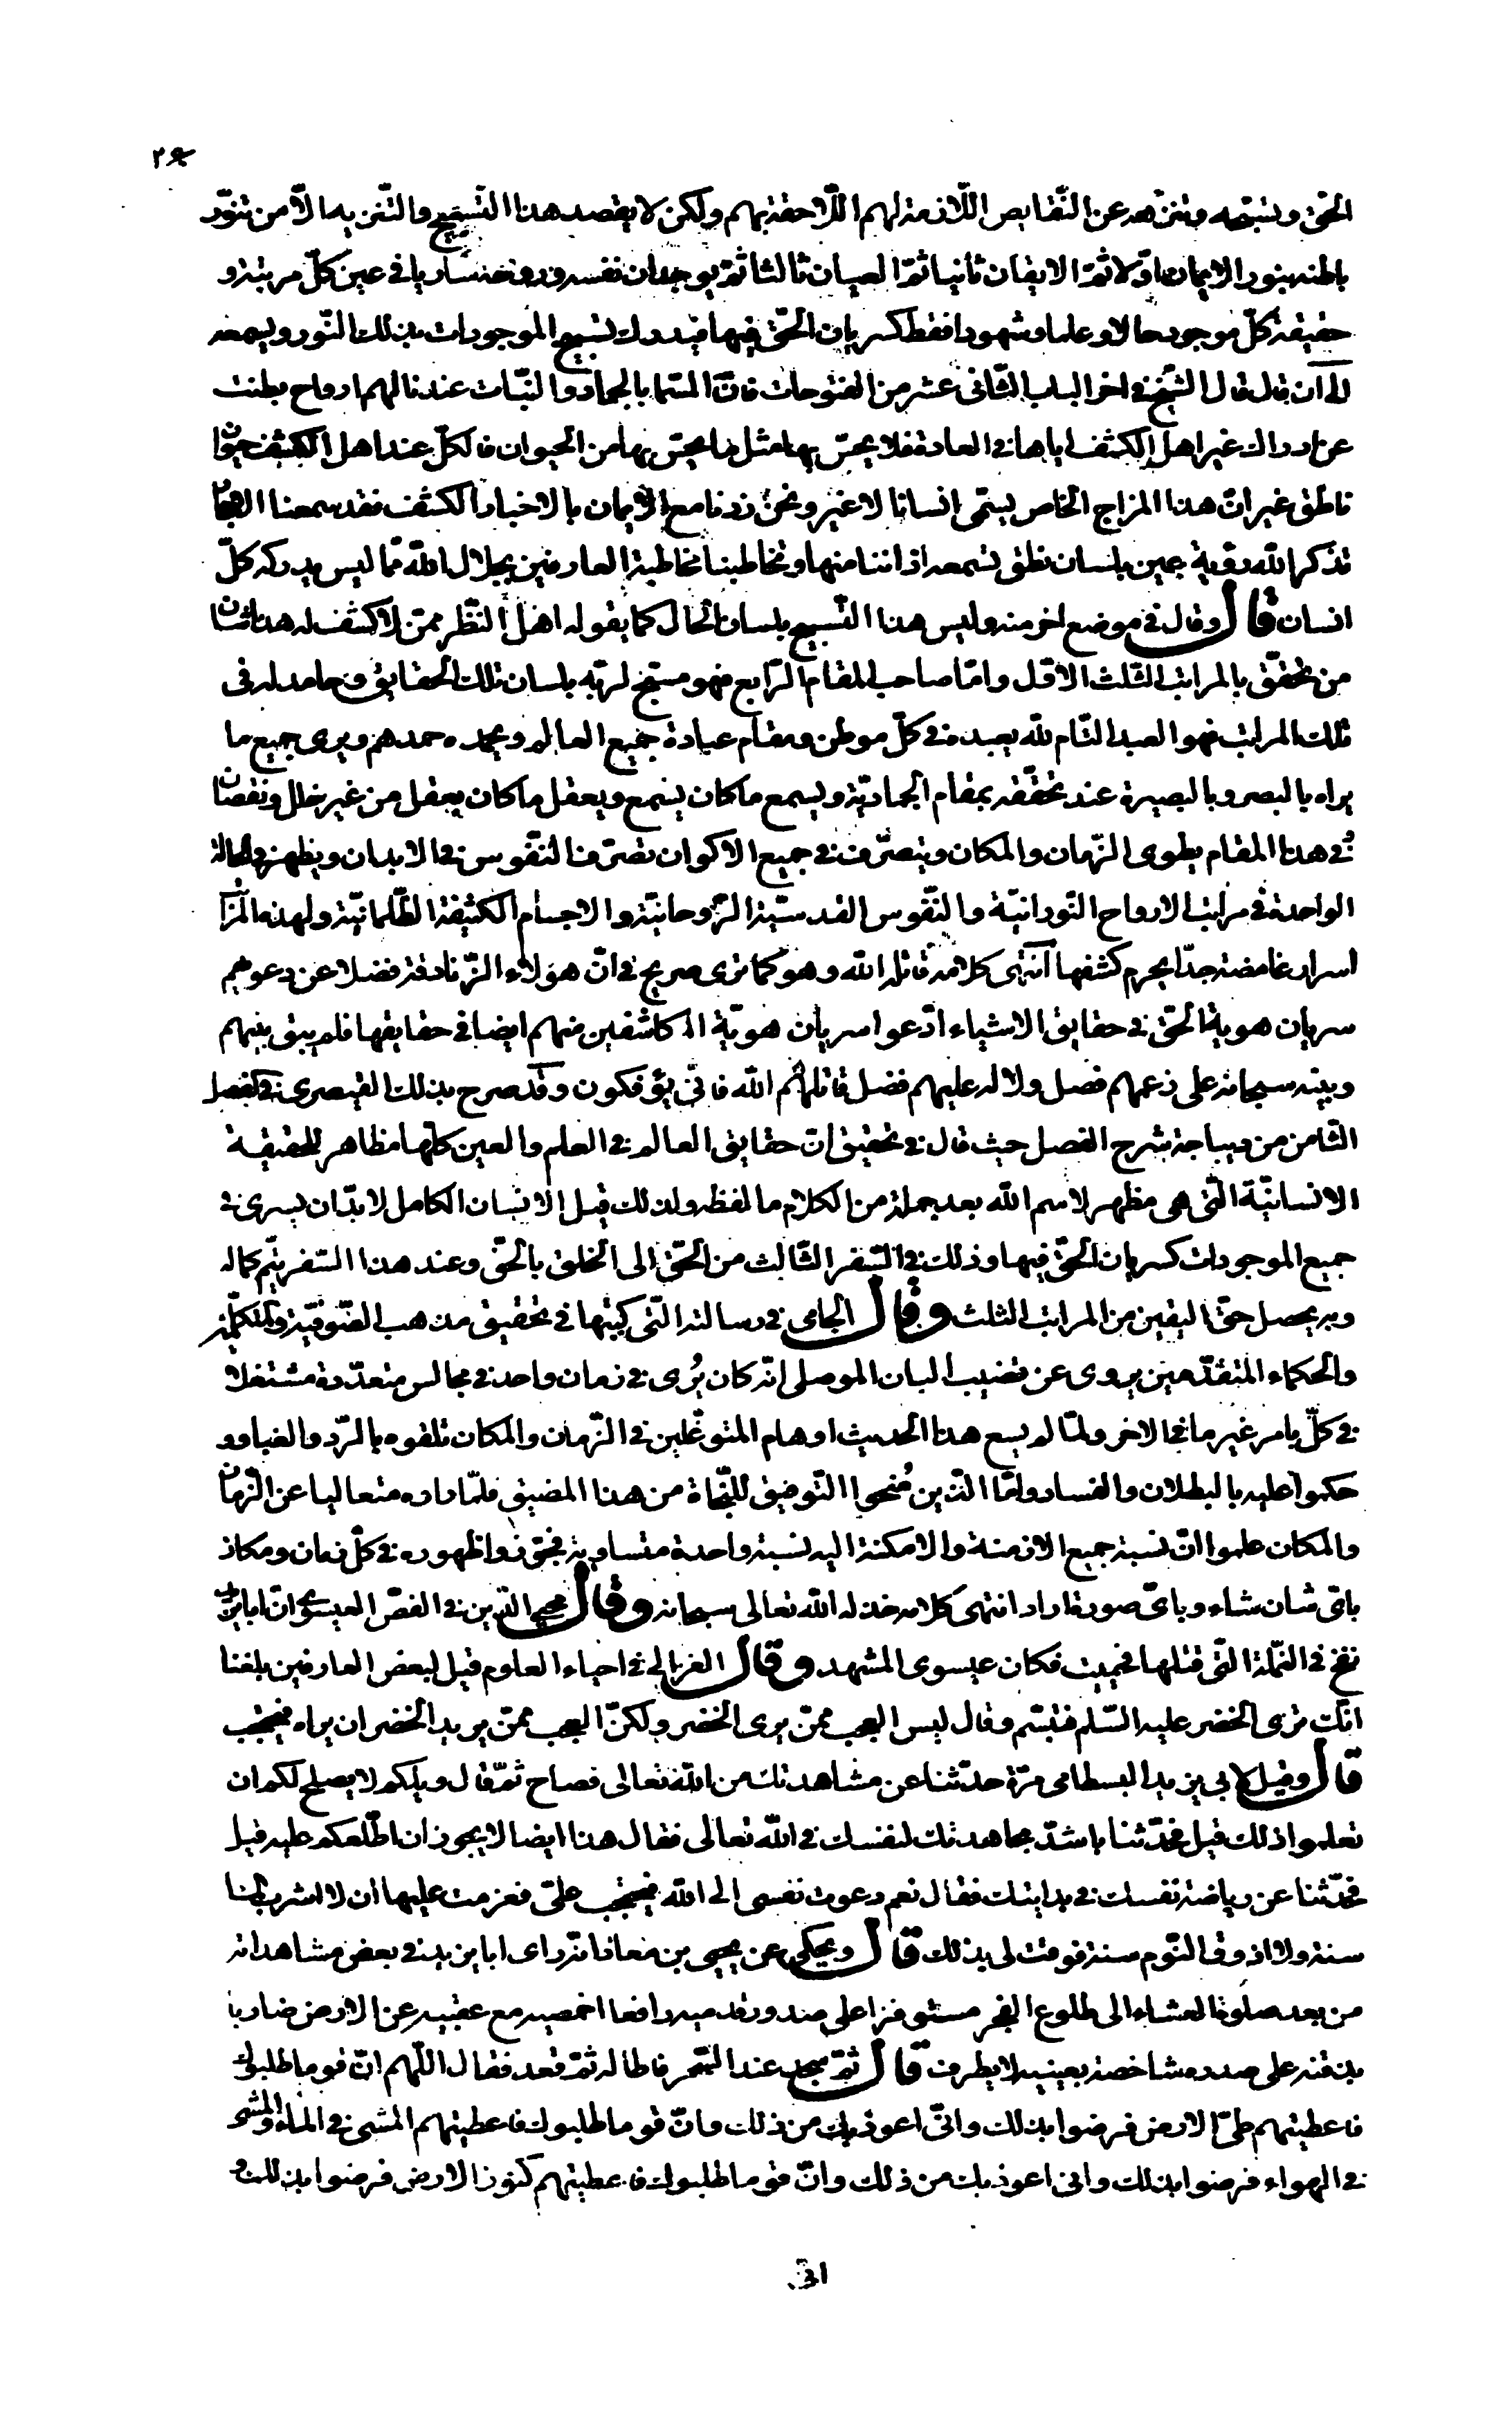 الحق وتسبحه وتنزهه عن النقايص اللازمة لهم اللاحقة بهم ولكن لا يقصد هذا التسبيح والتنزيه الا من تنور
باطنه بنور الايمان اولا ثم الايقان ثانيا ثم العيان ثالثا ثم يوجدان نفسه وروحه ساريا في عين كل مرتبة و
حقيقة كل موجود حالا وعلما وشهودا فقط كسريان الحق فيها فيدرك تسبيح الموجودات بذلك النور ويسمعه
الى ان قال قال الشيخ في اخر الباب الثاني عشر من الفتوحات فان المسما بالجماد والنبات عندنا لهم ارواح بطنت
عن ادراك غير اهل الكشف اياها في العادة فلا يحس بها مثل ما يحس بها من الحيوان فالكل عند اهل الكشف حيوان
ناطق غير ان هذا المزاج الخاص يسمى انسانا لا غير ونحن زدنا مع الايمان بالاخبار الكشف فقد سمعنا الاحجار
تذكر الله رؤية عين بلسان نطق تسمعه اذاننا منها وتخاطبنا مخاطبة العارفين بجلال الله مما ليس يدركه كل
انسان قال وقال في موضع اخر منه وليس هذا التسبيح بلسان الحال كما يقوله اهل النظر ممن لا كشف له هذا شان
من تحقق بالمراتب الثلث الاول واما صاحب المقام الرابع فهو مسبح لربه بلسان تلك الحقايق وحامد له في
تلك المراتب فهو العبد التام لله يعبده في كل موطن ومقام عبادة جميع العالم ويحمده حمدهم ويرى جميع ما
يراه بالبصر وبالبصيرة عند تحققه بمقام الجمادية ويسمع ما كان يسمع ويعقل ما كان يعقل من غير خلل ونقصان
في هذا المقام يطوى الزمان والمكان ويتصرف في جميع الاكوان تصرف النفوس في الابدان ويظهر في الحالة
الواحدة في مراتب الارواح النورانية والنفوس القدسية الروحانية والاجسام الكثيفة الظلمانية ولهذه المراتب
اسرار غامضة جدا يحرم كشفها انتهى كلامه قاتله الله وهو كما ترى صريح في ان هؤلاء الزنادقة فضلا عن دعويهم
سريان هوية الحق في حقايق الاشياء ادعوا سريان هوية المكاشفين منهم ايضا في حقايقها فلم يبق بينهم
وبينه سبحانه على زعمهم فصل ولا له عليهم فضل قاتلهم الله فانى يؤفكون وقد صرح بذلك القيصري في الفصل
الثامن من ديباجة شرح الفصل حيث قال في تحقيق ان حقايق العالم في العلم والعين كلها مظاهر للحقيقة
الانسانية التي هي مظهر لاسم الله بعد جملة من الكلام ما لفظه ولذلك قيل الانسان الكامل لا بد ان يسرى في
جميع الموجودات كسريان الحق فيها وذلك في السفر الثالث من الحق الى الخلق بالحق وعند هذا السفر يتم كماله
وبه يحصل حق اليقين من المراتب الثلث وقال الجامي في رسالته التي كتبها في تحقيق مذهب الصوفية والمتكلمين
والحكماء المتقدمين يروى عن قضيب البان الموصلي انه كان يُرى في زمان واحد في مجالس متعددة مشتغلا
في كل بامر غير ما في الاخر ولما لم يسع هذا الحديث اوهام المتوغلين في الزمان والمكان تلقوه بالرد والعناد و
حكموا عليه بالبطلان والفساد واما الذين مُنحوا التوفيق للنجاة من هذا المضيق فلما راره متعاليا عن الزمان
والمكان علموا ان نسبة جميع الازمنة والامكنة اليه نسبة واحدة متساوية فجوزوا ظهوره في كل زمان ومكان
باي شان شاء وباى صورة اراد انتهى كلامه خذله الله تعالى سبحانه وقال محيي الدين في الفص العيسوي ان ابا يزيد
نفخ في النملة التي قتلها فحييت فكان عيسوى المشهد وقال الغزالي في احياء العلوم قيل لبعض العارفين بلغنا
انك ترى الخضر عليه السلم فتبسم وقال ليس العجب ممن يرى الخضر ولكن العجب ممن يريد الخضر ان يراه فيحتجب
قال وقيل لابي يزيد البسطامي مرة حدثنا عن مشاهدتك من الله تعالى فصاح ثم قال ويلكم لا يصلح لكم ان
تعلموا ذلك قيل فحدثنا باشد مجاهدتك لنفسك في الله تعالى فقال هذا ايضا لا يجوز ان اطلعكم عليه قيل
فحدثنا عن رياضة نفسك في بدايتك فقال نعم دعوت نفسى الى الله فيحتجب على فعزمت عليها ان لا اشرب الماء
سنة ولا اذوق النوم سنة فوفت لى بذلك قال ويحكى عن يحيى بن معاذ انه راى ابا يزيد في بعض مشاهداته
من بعد صلوة العشاء الى طلوع الفجر مستوفزا على صدور قدميه رافعا اخمصيه مع عقبيه عن الارض ضاربا
بذقنه على صدره شاخصة بعينيه لا يطرف قال ثم سجد عند السحر فاطاله ثم قعد فقال اللهم ان قوما طلبوك
فاعطيتهم طى الارض فرضوا بذلك وانى اعوذ بك من ذلك وان قوما طلبوك فاعطيتهم المشى في الماء والمشى
في الهواء فرضوا بذلك وانى اعوذ بك من ذلك وان قوما طلبوك فاعطيتهم كنوز الارض فرضوا بذلك و
انى